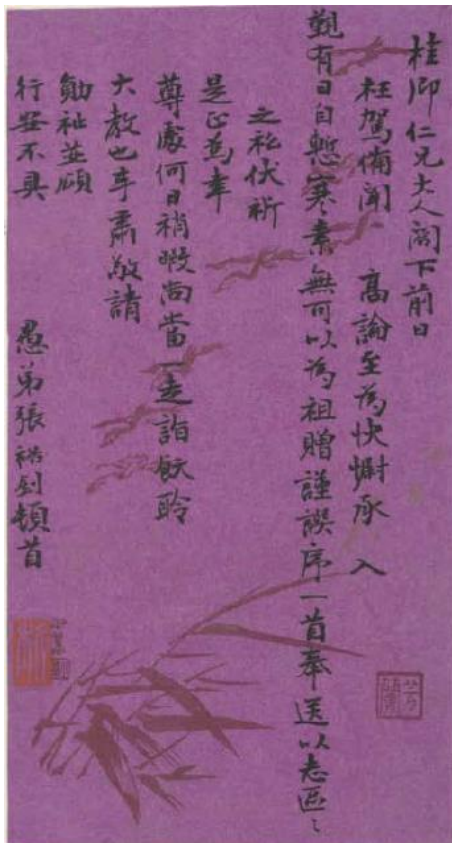 桂卿仁兄大人閣下前日
枉駕備聞 高論至為快慰承 入
覲有日自慙寒素無可以為祖贈謹譔序一首奉送以志區〻
之私伏祈
是正為幸
尊處何日稍暇尚當一走詣飫聆
大教也專肅敬請
勛祉並頌
行安不具
愚弟張裕釗頓首